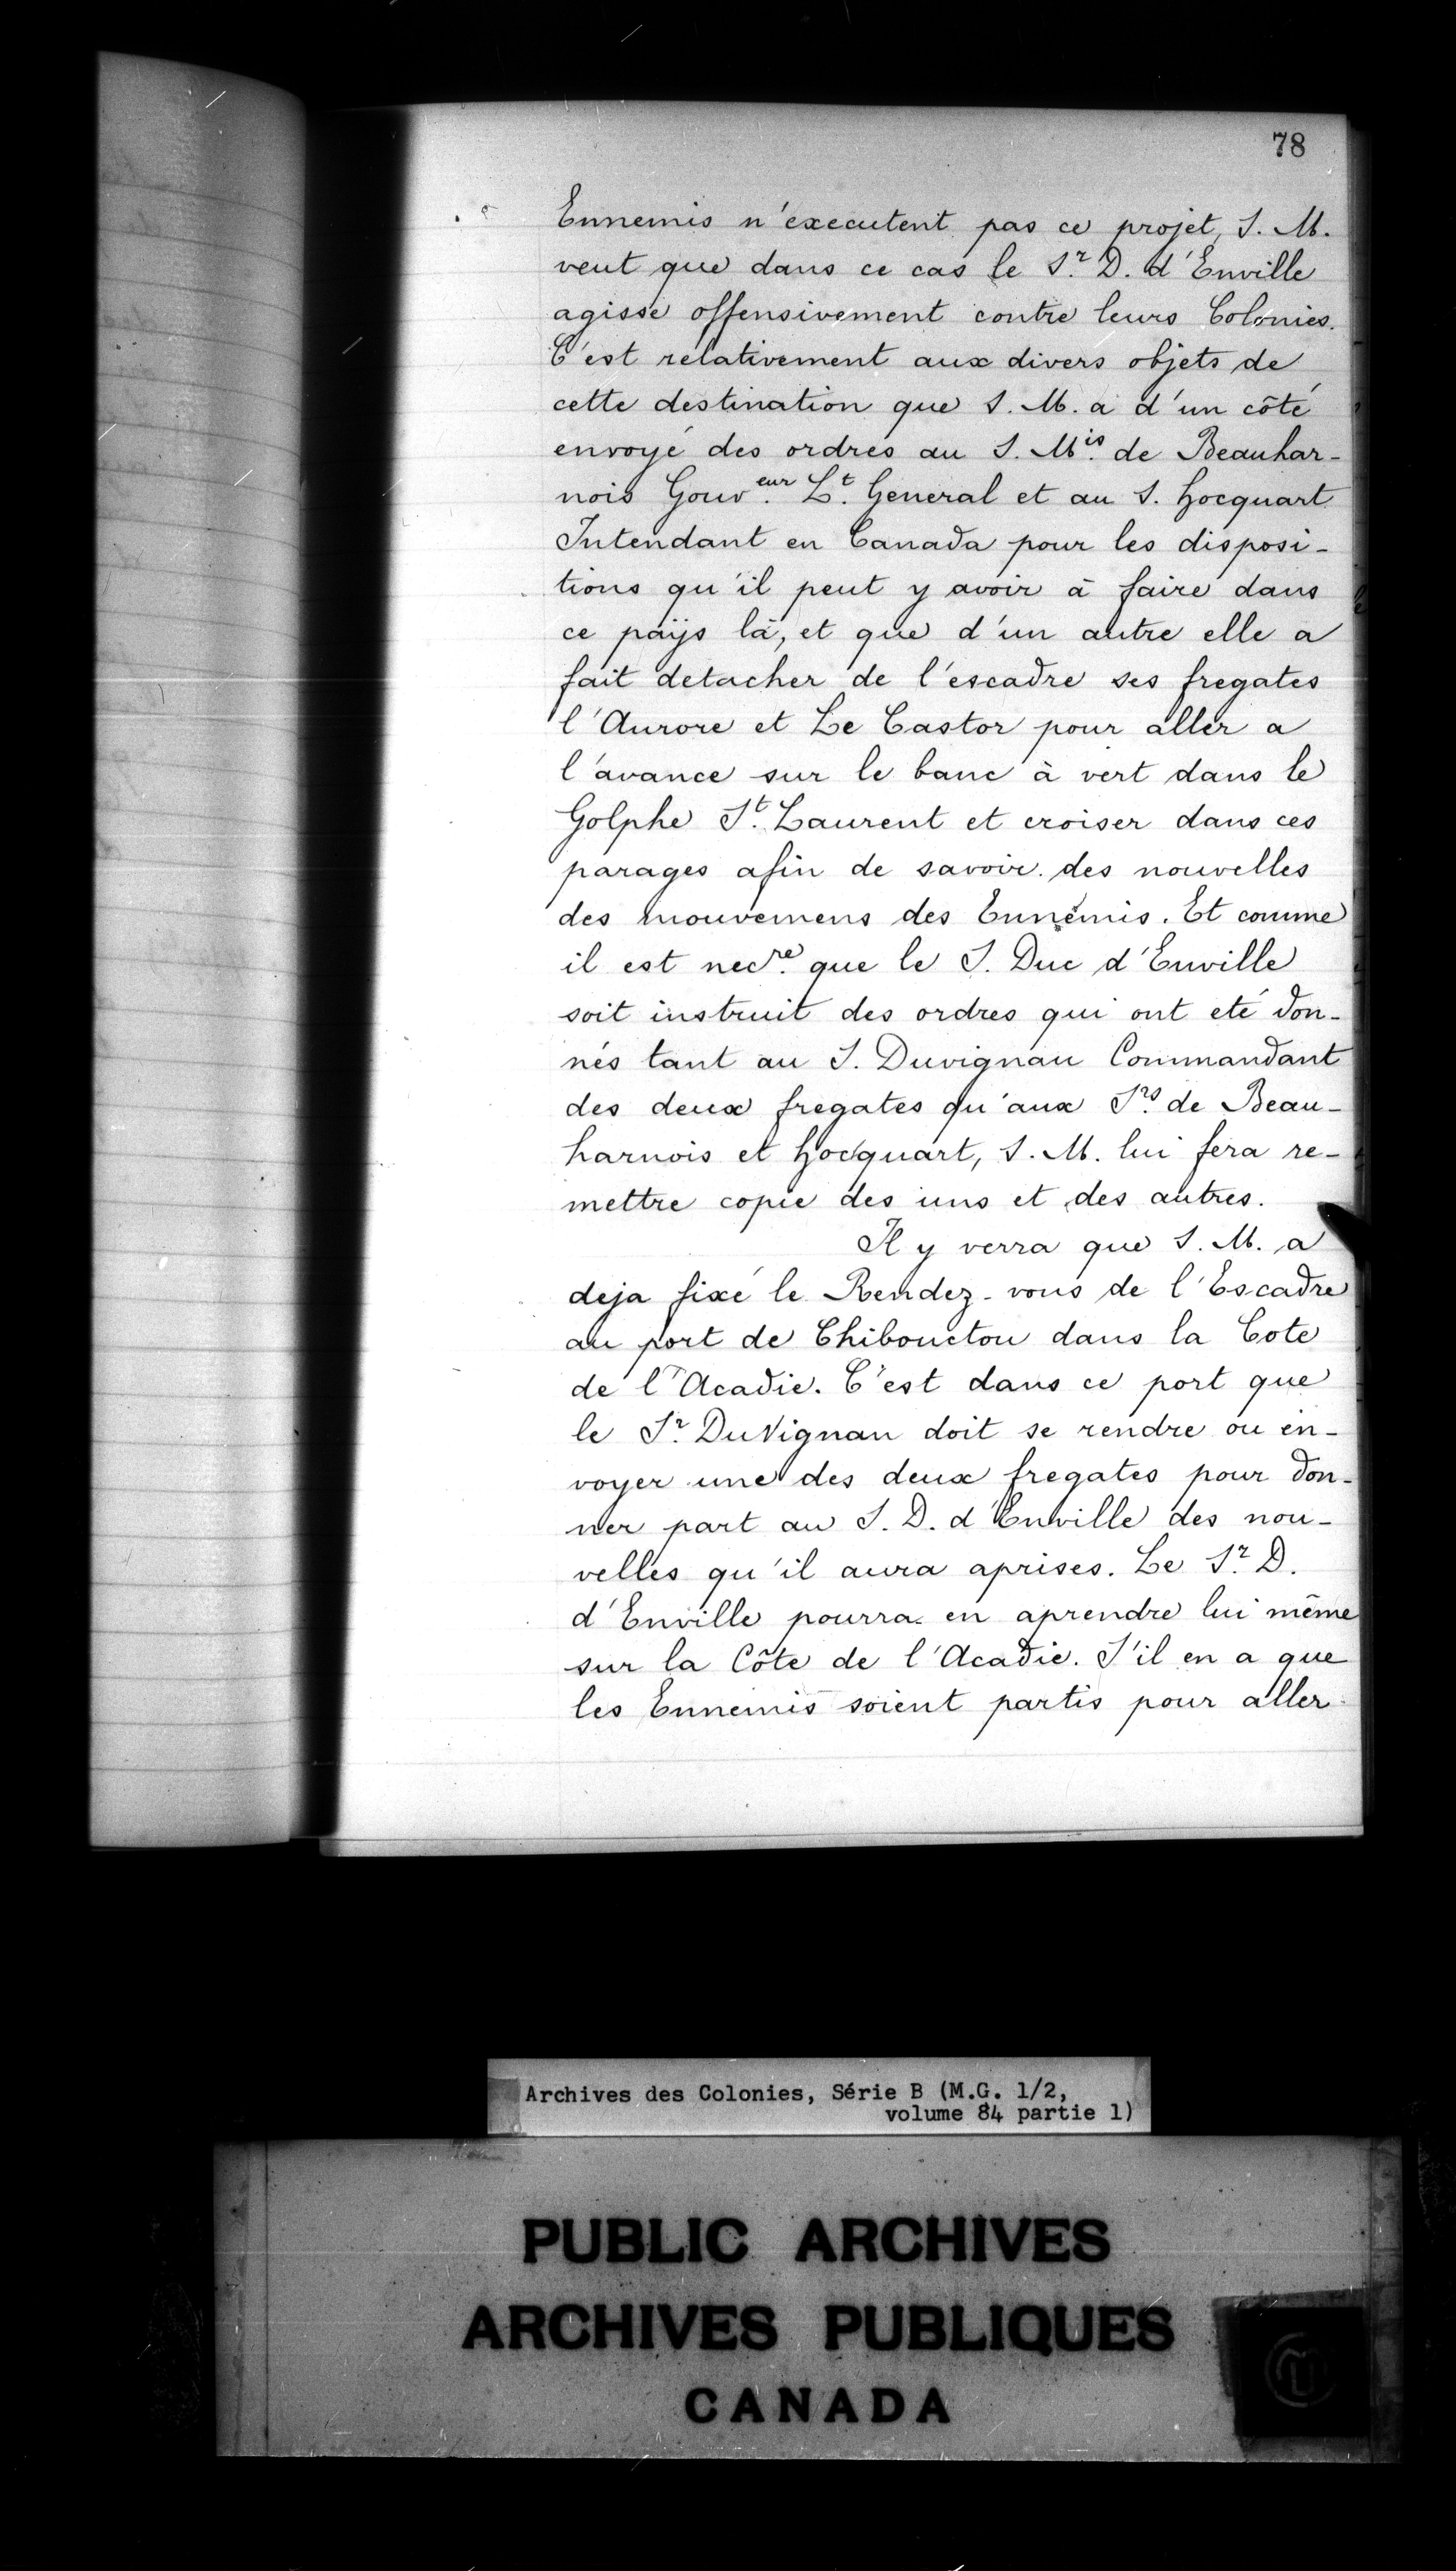 78
Ennemis n'executent pas ce projet, S. M.
veut que dans ce cas le S.r D. d'Enville
agisse offensivement contre leurs Colonies.
C'est relativement aux divers objets de
cette destination que S. M. a d'un côté
envoyé des ordres au S. M.is de Beauhar-
nois Gouv.eur L.t General et au S. hocquart
Intendant en Canada pour les disposi-
tions qu'il peut y avoir à faire dans
ce païjs là, et que d'un autre elle a
fait detacher de l'escadre ses fregates
l'Aurore et Le Castor pour aller a
l'avance sur le banc à vert dans le
Golphe S.t Laurent et croiser dans ces
parages afin de savoir des nouvelles
des mouvemens des Ennemis. Et comme
il est nec.re que le S. Duc d'Enville
soit instruit des ordres qui ont eté don-
nés tant au S. Duvignau Commandant
des deux fregates qu'aux S.rs de Beau-
harnois et hocquart, S. M. lui fera re-
mettre copie des uns et des autres.
Il y verra que S. M. a
deja fixé le Rendez-vous de l'Escadre
au port de Chibouctou dans la Cote
de l'Acadie. C'est dans ce port que
le S.r DuVignau doit se rendre ou en-
voyer une des deux fregates pour don-
ner part au S. D. d'Enville des nou-
velles qu'il aura aprises. Le S.r D.
d'Enville pourra en aprendre lui même
sur la Côte de l'Acadie. S'il en a que
les Ennemis soient partis pour aller
Archives des Colonies, Série B (M.G. 1/2,
volume 84 partie 1)
PUBLIC ARCHIVES
ARCHIVES PUBLIQUES
CANADA